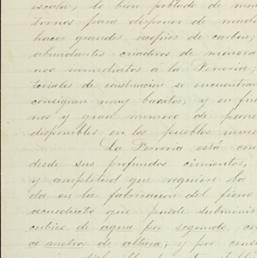 escala; lo bien poblado de mon
tornos para disponer de made
hacer grandes acopios de carbon;
abundantes criaderos de minera
nos inmediatos á la Ferreria;
teriales de construccion se encuentran
consiguen muy baratos; y en fin
nos y gran número de
disponibles en los pueblos inme
La Ferreria está con
desde sus profundos cimientos,
y amplitud que requiere la
da en la fabricacion del fierro
acueducto que puede suministr
cubica de agua por segundo, con
de altura; y por cons